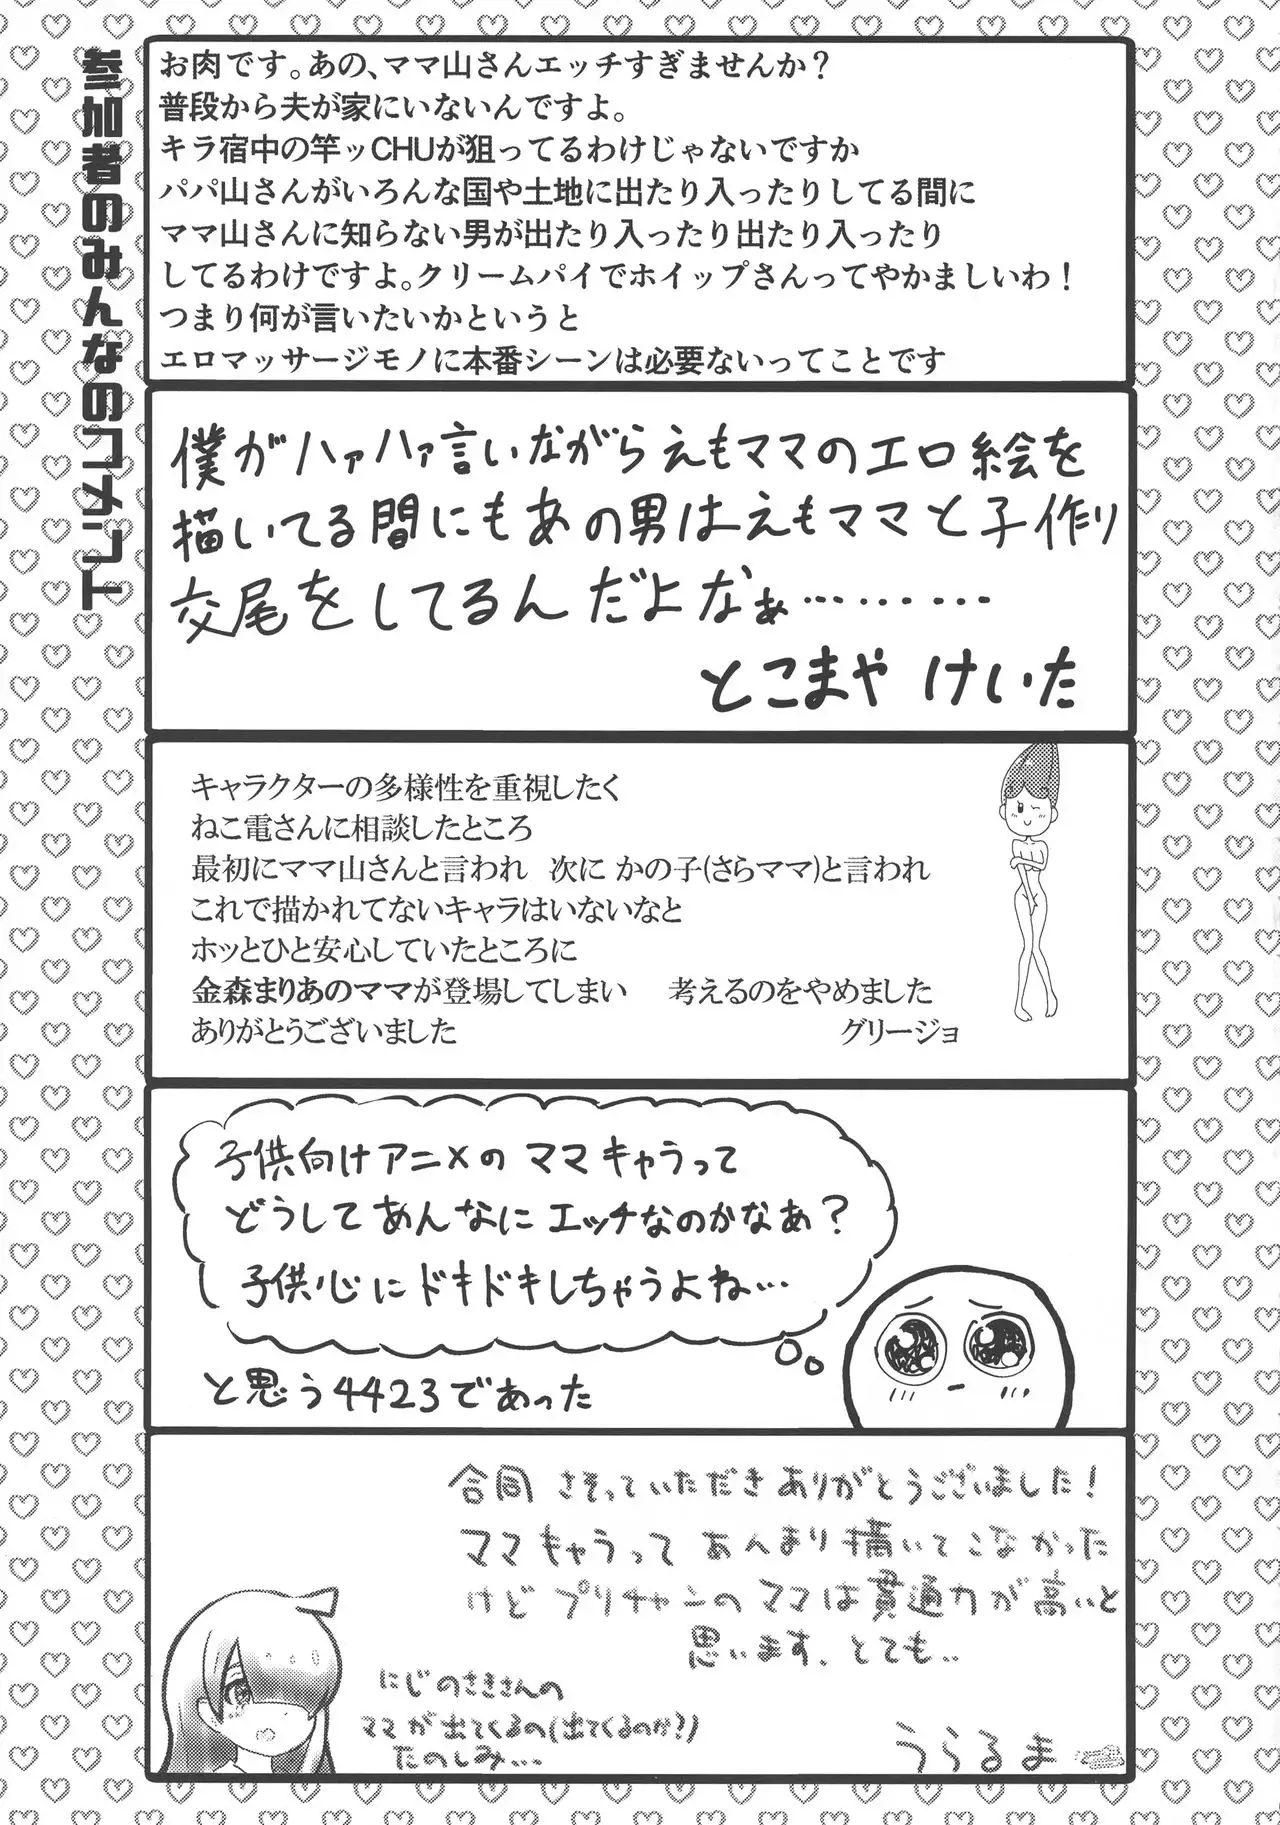 参加者のみんなのコメント
お肉です。あの、ママ山さんエッチすぎませんか？
普段から夫が家にいないんですよ。
キラ宿中の竿ッCHUが狙ってるわけじゃないですか
パパ山さんがいろんな国や土地に出たり入ったりしてる間に
ママ山さんに知らない男が出たり入ったり出たり入ったり
してるわけですよ。クリームパイでホイップさんってやかましいわ！
つまり何が言いたいかというと
エロマッサージモノに本番シーンは必要ないってことです
僕がハァハァ言いながらえもママのエロ絵を
描いてる間にもあの男はえもママと子作り
交尾をしてるんだよなぁ………
とこまや けいた
キャラクターの多様性を重視したく
ねこ電さんに相談したところ
最初にママ山さんと言われ　次に かの子(さらママ)と言われ
これで描かれてないキャラはいないなと
ホッとひと安心していたところに
金森まりあのママが登場してしまい　考えるのをやめました
ありがとうございました　グリージョ
子供向けアニメのママキャラって
どうしてあんなにエッチなのかなあ？
子供心にドキドキしちゃうよね…
と思う4423であった
合同 さそっていただきありがとうございました！
ママキャラって あんまり描いてこなかった
けど プリチャンのママは貫通力が高いと
思います、とても..
にじのさきさんの
ママが出てくるの(出てくるのか?)
たのしみ…
うらるま